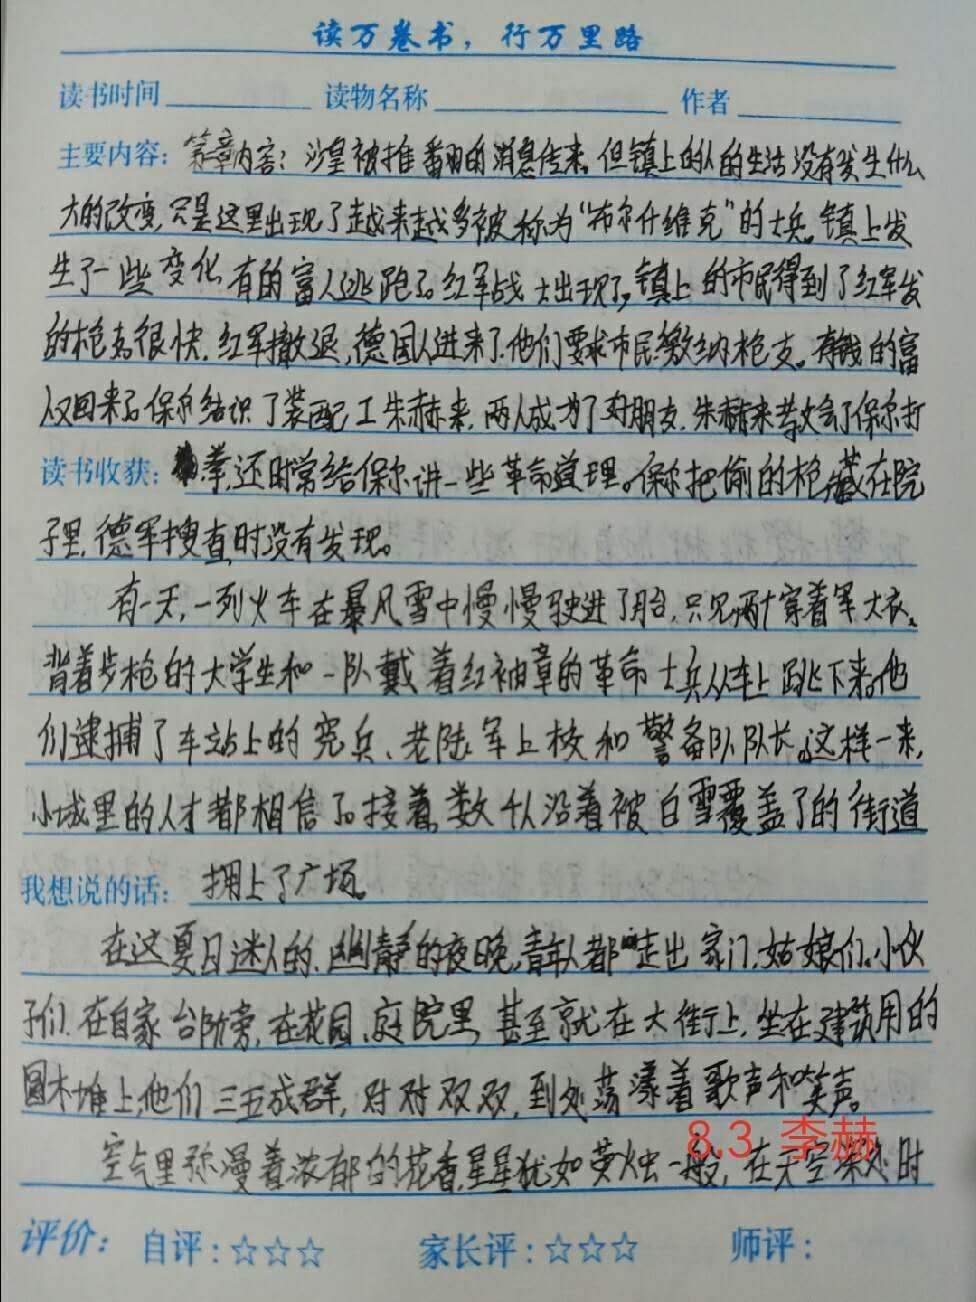 读万卷书，行万里路
读书时间 读物名称 作者
主要内容：第二章内容：沙皇被推翻的消息传来，但镇上的人的生活没有发生什么
大的改变，只是这里出现了越来越多被称为“布尔什维克”的士兵。镇上发
生了一些变化，有的富人逃跑了。红军战士出现了，镇上的市民得到了红军发
的枪支。很快，红军撤退，德国人进来了，他们要求市民缴纳枪支。有钱的富
人又回来了。保尔结识了装配工朱赫来，两人成为了好朋友，朱赫来教会了保尔打
读书收获：拳，还时常给保尔讲一些革命道理。保尔把偷的枪藏在院
子里，德军搜查时没有发现。
有一天，一列火车在暴风雪中慢慢驶进了月台，只见两个穿着军大衣、
背着步枪的大学生和一队戴着红袖章的革命士兵从车上跳下来。他
们逮捕了车站上的宪兵、老陆军上校和警备队队长。这样一来，
小城里的人才都相信了。接着，数千人沿着被白雪覆盖了的街道
我想说的话：拥上了广场。
在这夏日迷人的、幽静的夜晚，青年人都走出家门，姑娘们、小伙
子们，在自家台阶旁，在花园、庭院里，甚至就在大街上，坐在建筑用的
圆木堆上，他们三五成群，对对双双，到处荡漾着歌声和笑声。
空气里弥漫着浓郁的花香，星星犹如萤烛一般，在天空深处时
8.3 李赫
评价：自评：☆☆☆ 家长评：☆☆☆ 师评：